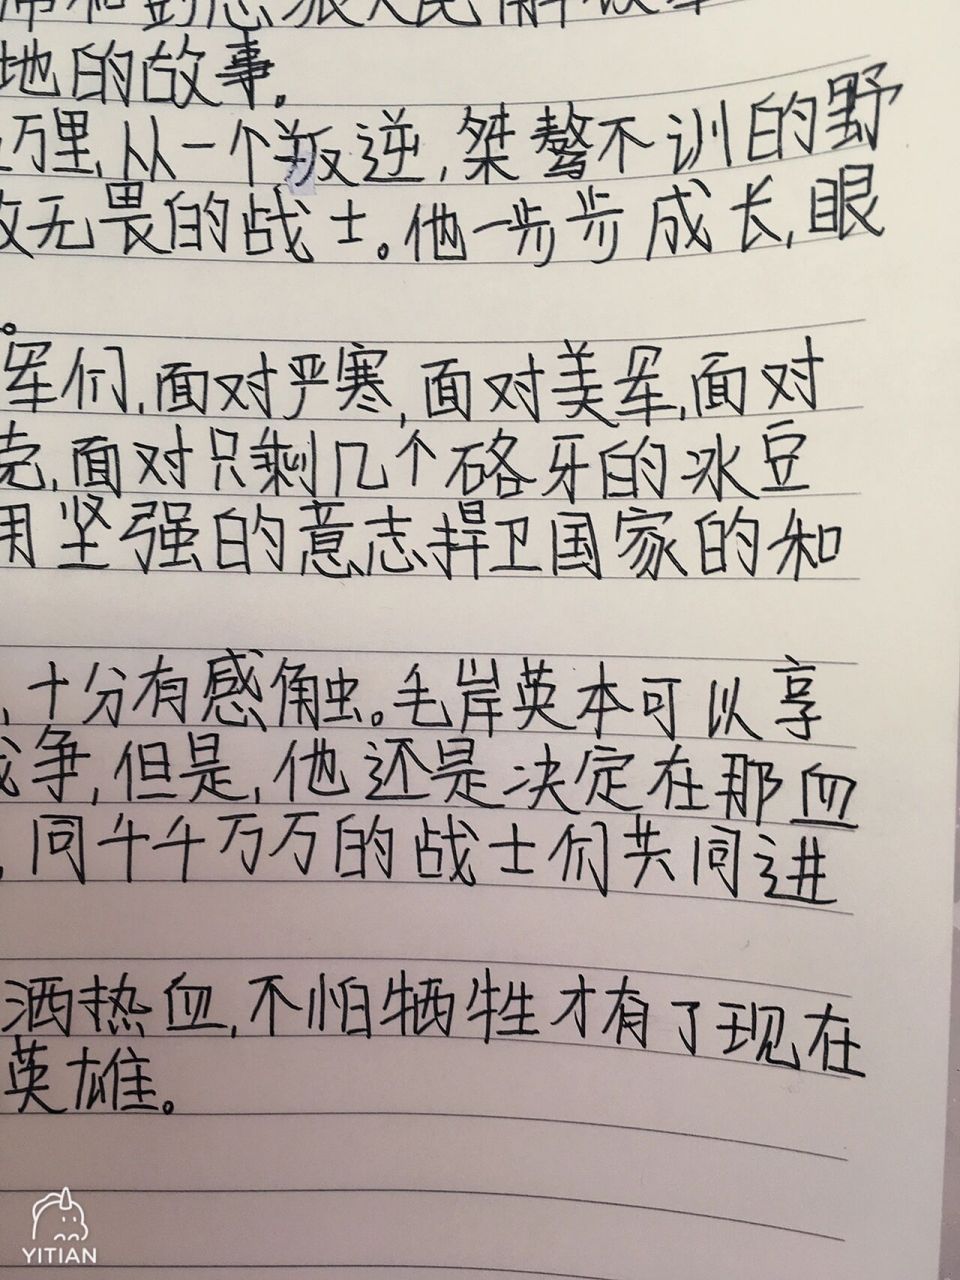 地的故事。
万里,从一个叛逆,桀骜不训的野
无畏的战士。他一步步成长,眼
。
军们,面对严寒,面对美军,面对
壳,面对只剩几个硌牙的冰豆
用坚强的意志捍卫国家的和
,十分有感触。毛岸英本可以享
战争,但是,他还是决定在那血
,同千千万万的战士们共同进
洒热血,不怕牺牲才有了现在
英雄。
YITIAN